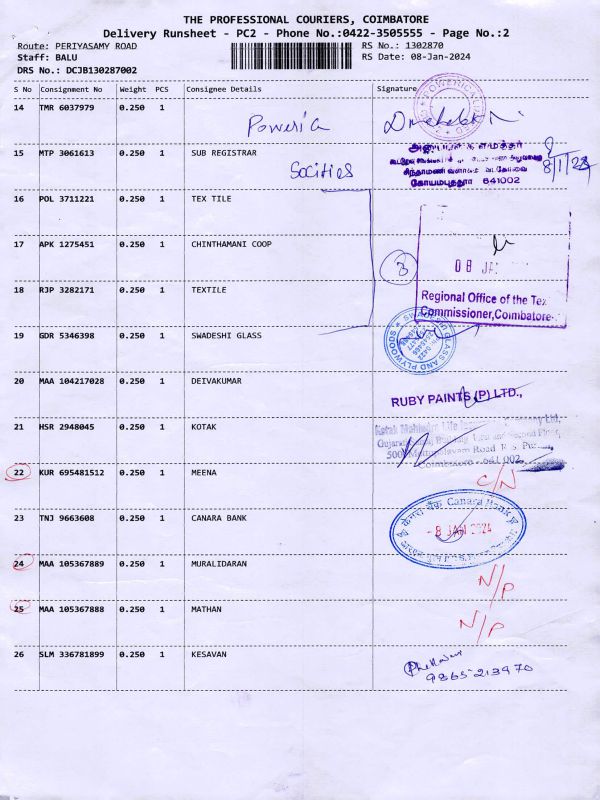 THE PROFESSIONAL COURIERS, COIMBATORE
Delivery Runsheet - PC2 - Phone No.:0422-3505555 - Page No.:2
Route: PERIYASAMY ROAD RS No.: 1302870
Staff: BALU RS Date: 08-Jan-2024
DRS No.: DCJB130287002
S No Consignment No Weight PCS Consignee Details Signature
14 TMR 6037979 0.250 1
15 MTP 3061613 0.250 1 SUB REGISTRAR
Socities
8/1/24
சிந்தாமணி வளாகம்
கோயமபுத்தூர் 641002
16 POL 3711221 0.250 1 TEX TILE
17 APK 1275451 0.250 1 CHINTHAMANI COOP
3
08 JAN
18 RJP 3282171 0.250 1 TEXTILE
Regional Office of the Tex
Commissioner,Coimbatore-
19 GDR 5346398 0.250 1 SWADESHI GLASS
SWADESHI GLASS AND PLYWOODS
20 MAA 104217028 0.250 1 DEIVAKUMAR
RUBY PAINTS (P) LTD.,
21 HSR 2948045 0.250 1 KOTAK
Kotak Mahindra Life
Coimbatore - 641 002
22 KUR 695481512 0.250 1 MEENA
C/N
23 TNJ 9663608 0.250 1 CANARA BANK
केनरा बैंक Canara Bank
- 8 JAN 2024
24 MAA 105367889 0.250 1 MURALIDARAN
N/P
25 MAA 105367888 0.250 1 MATHAN
N/P
26 SLM 336781899 0.250 1 KESAVAN
9865-213970